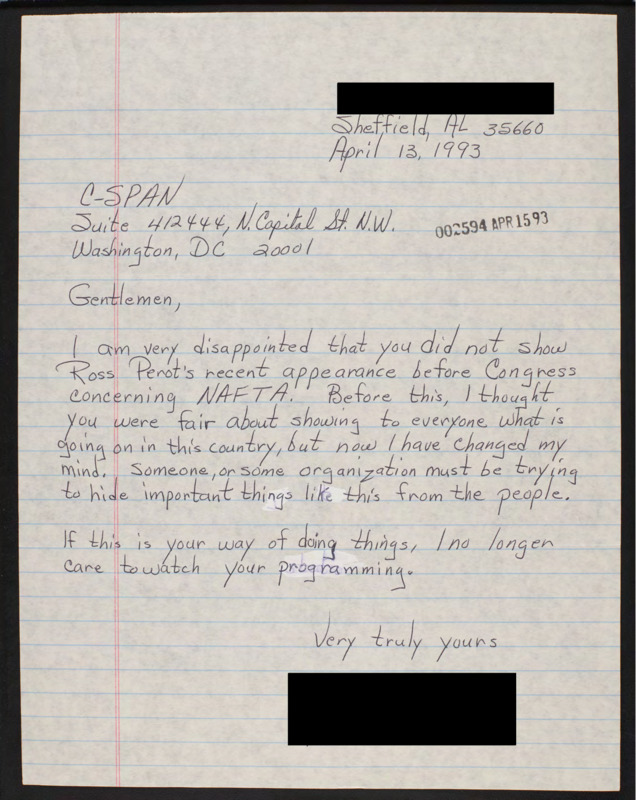 Sheffield, AL 35660
April 13, 1993
C-SPAN
Suite 412444, N. Capital St. N.W.
002594 APR 15 93
Washington, DC 20001
Gentlemen,
I am very disappointed that you did not show
Ross Perot's recent appearance before Congress
concerning NAFTA. Before this, I thought
you were fair about showing to everyone what is
going on in this country, but now I have changed my
mind. Someone, or some organization must be trying
to hide important things like this from the people.
If this is your way of doing things, I no longer
care to watch your programming.
Very truly yours